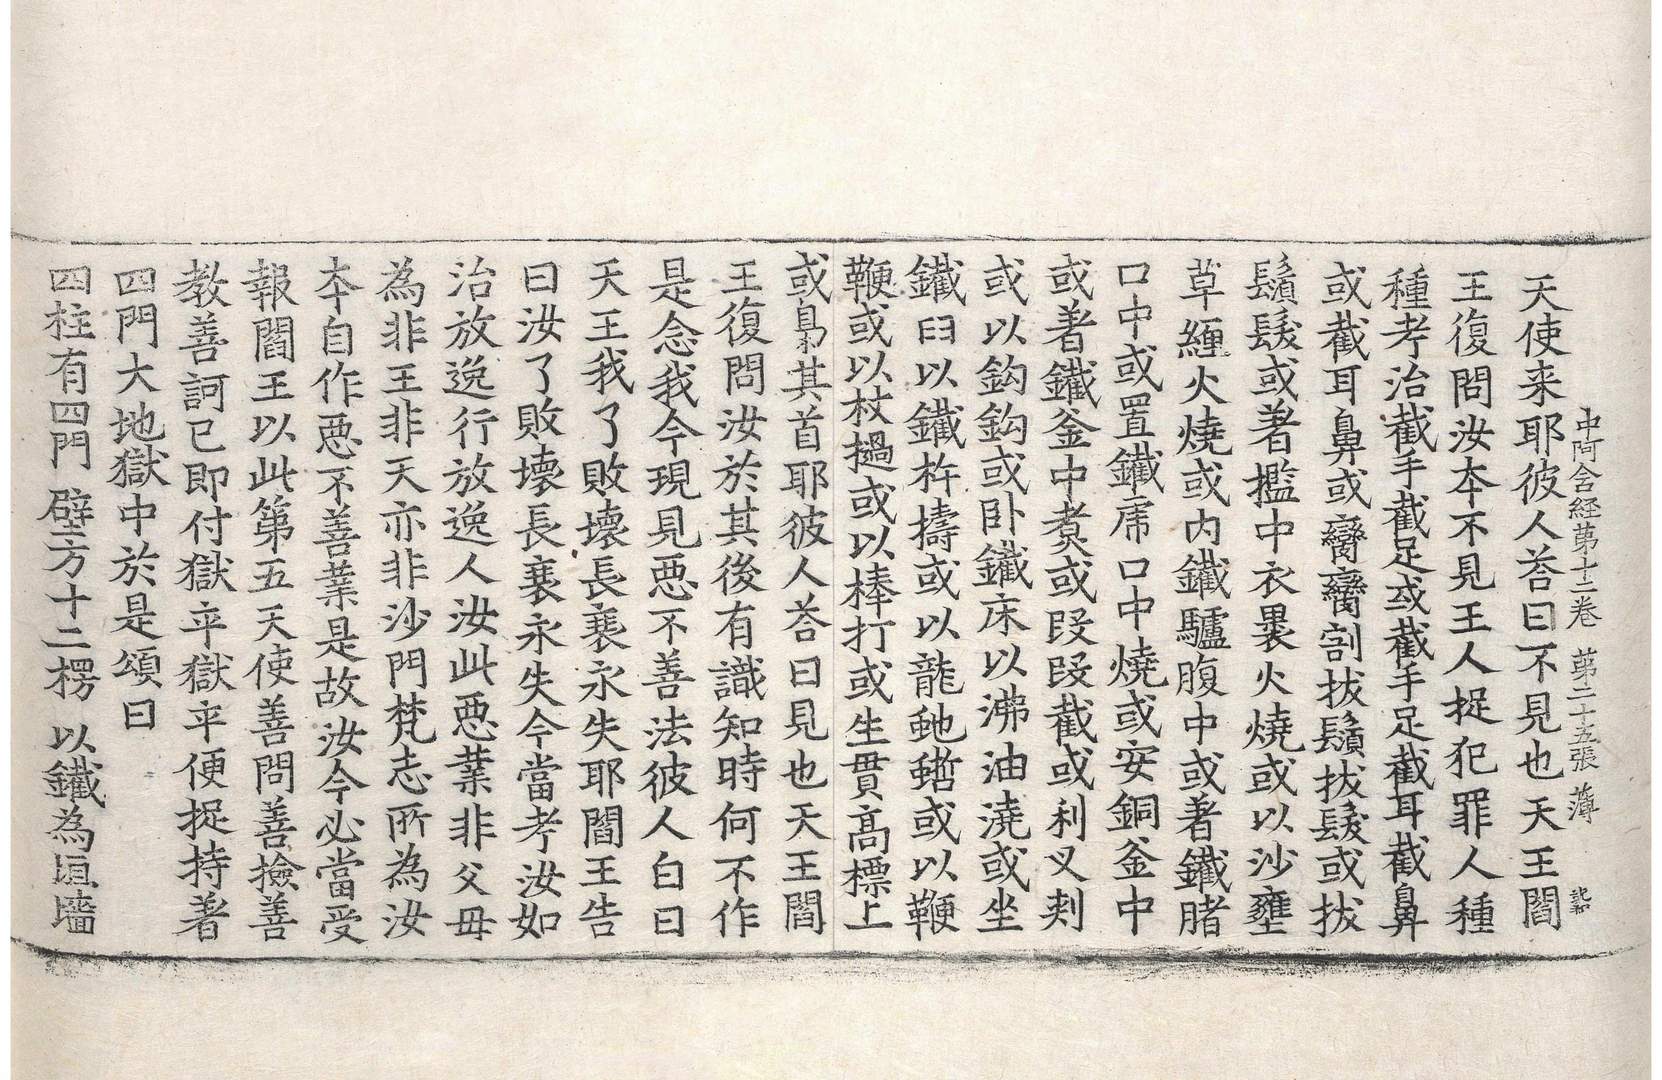 中阿含経第十二巻 第二十五張 薄
天使来耶彼人荅曰不見也天王閻
王復問汝本不見王人捉犯罪人種
種考治截手截足或截手足截耳截鼻
或截耳鼻或臠臠割拔鬚拔髮或拔
鬚髮或著檻中衣裹火燒或以沙壅
草纏火燒或内鐵驢腹中或著鐵腤
口中或置鐵席口中燒或安銅釜中
或著鐵釜中煑或段段截或利叉刾
或以鈎鈎或卧鐵床以沸油澆或坐
鐵臼以鐵杵擣或以龍虵蜇或以鞭
鞭或以杖撾或以棒打或生貫髙標上
或梟其首耶彼人荅曰見也天王閻
王復問汝於其後有識知時何不作
是念我今現見惡不善法彼人白曰
天王我了敗壊長衰永失耶閻王告
曰汝了敗壊長衰永失今當考汝如
治放逸行放逸人汝此惡業非父母
為非王非天亦非沙門梵志所為汝
本自作惡不善業是故汝今必當受
報閻王以此第五天使善問善撿善
教善訶已即付獄卒獄卒便捉持著
四門大地獄中於是頌曰
四柱有四門 壁方十二楞 以鐵為垣墻